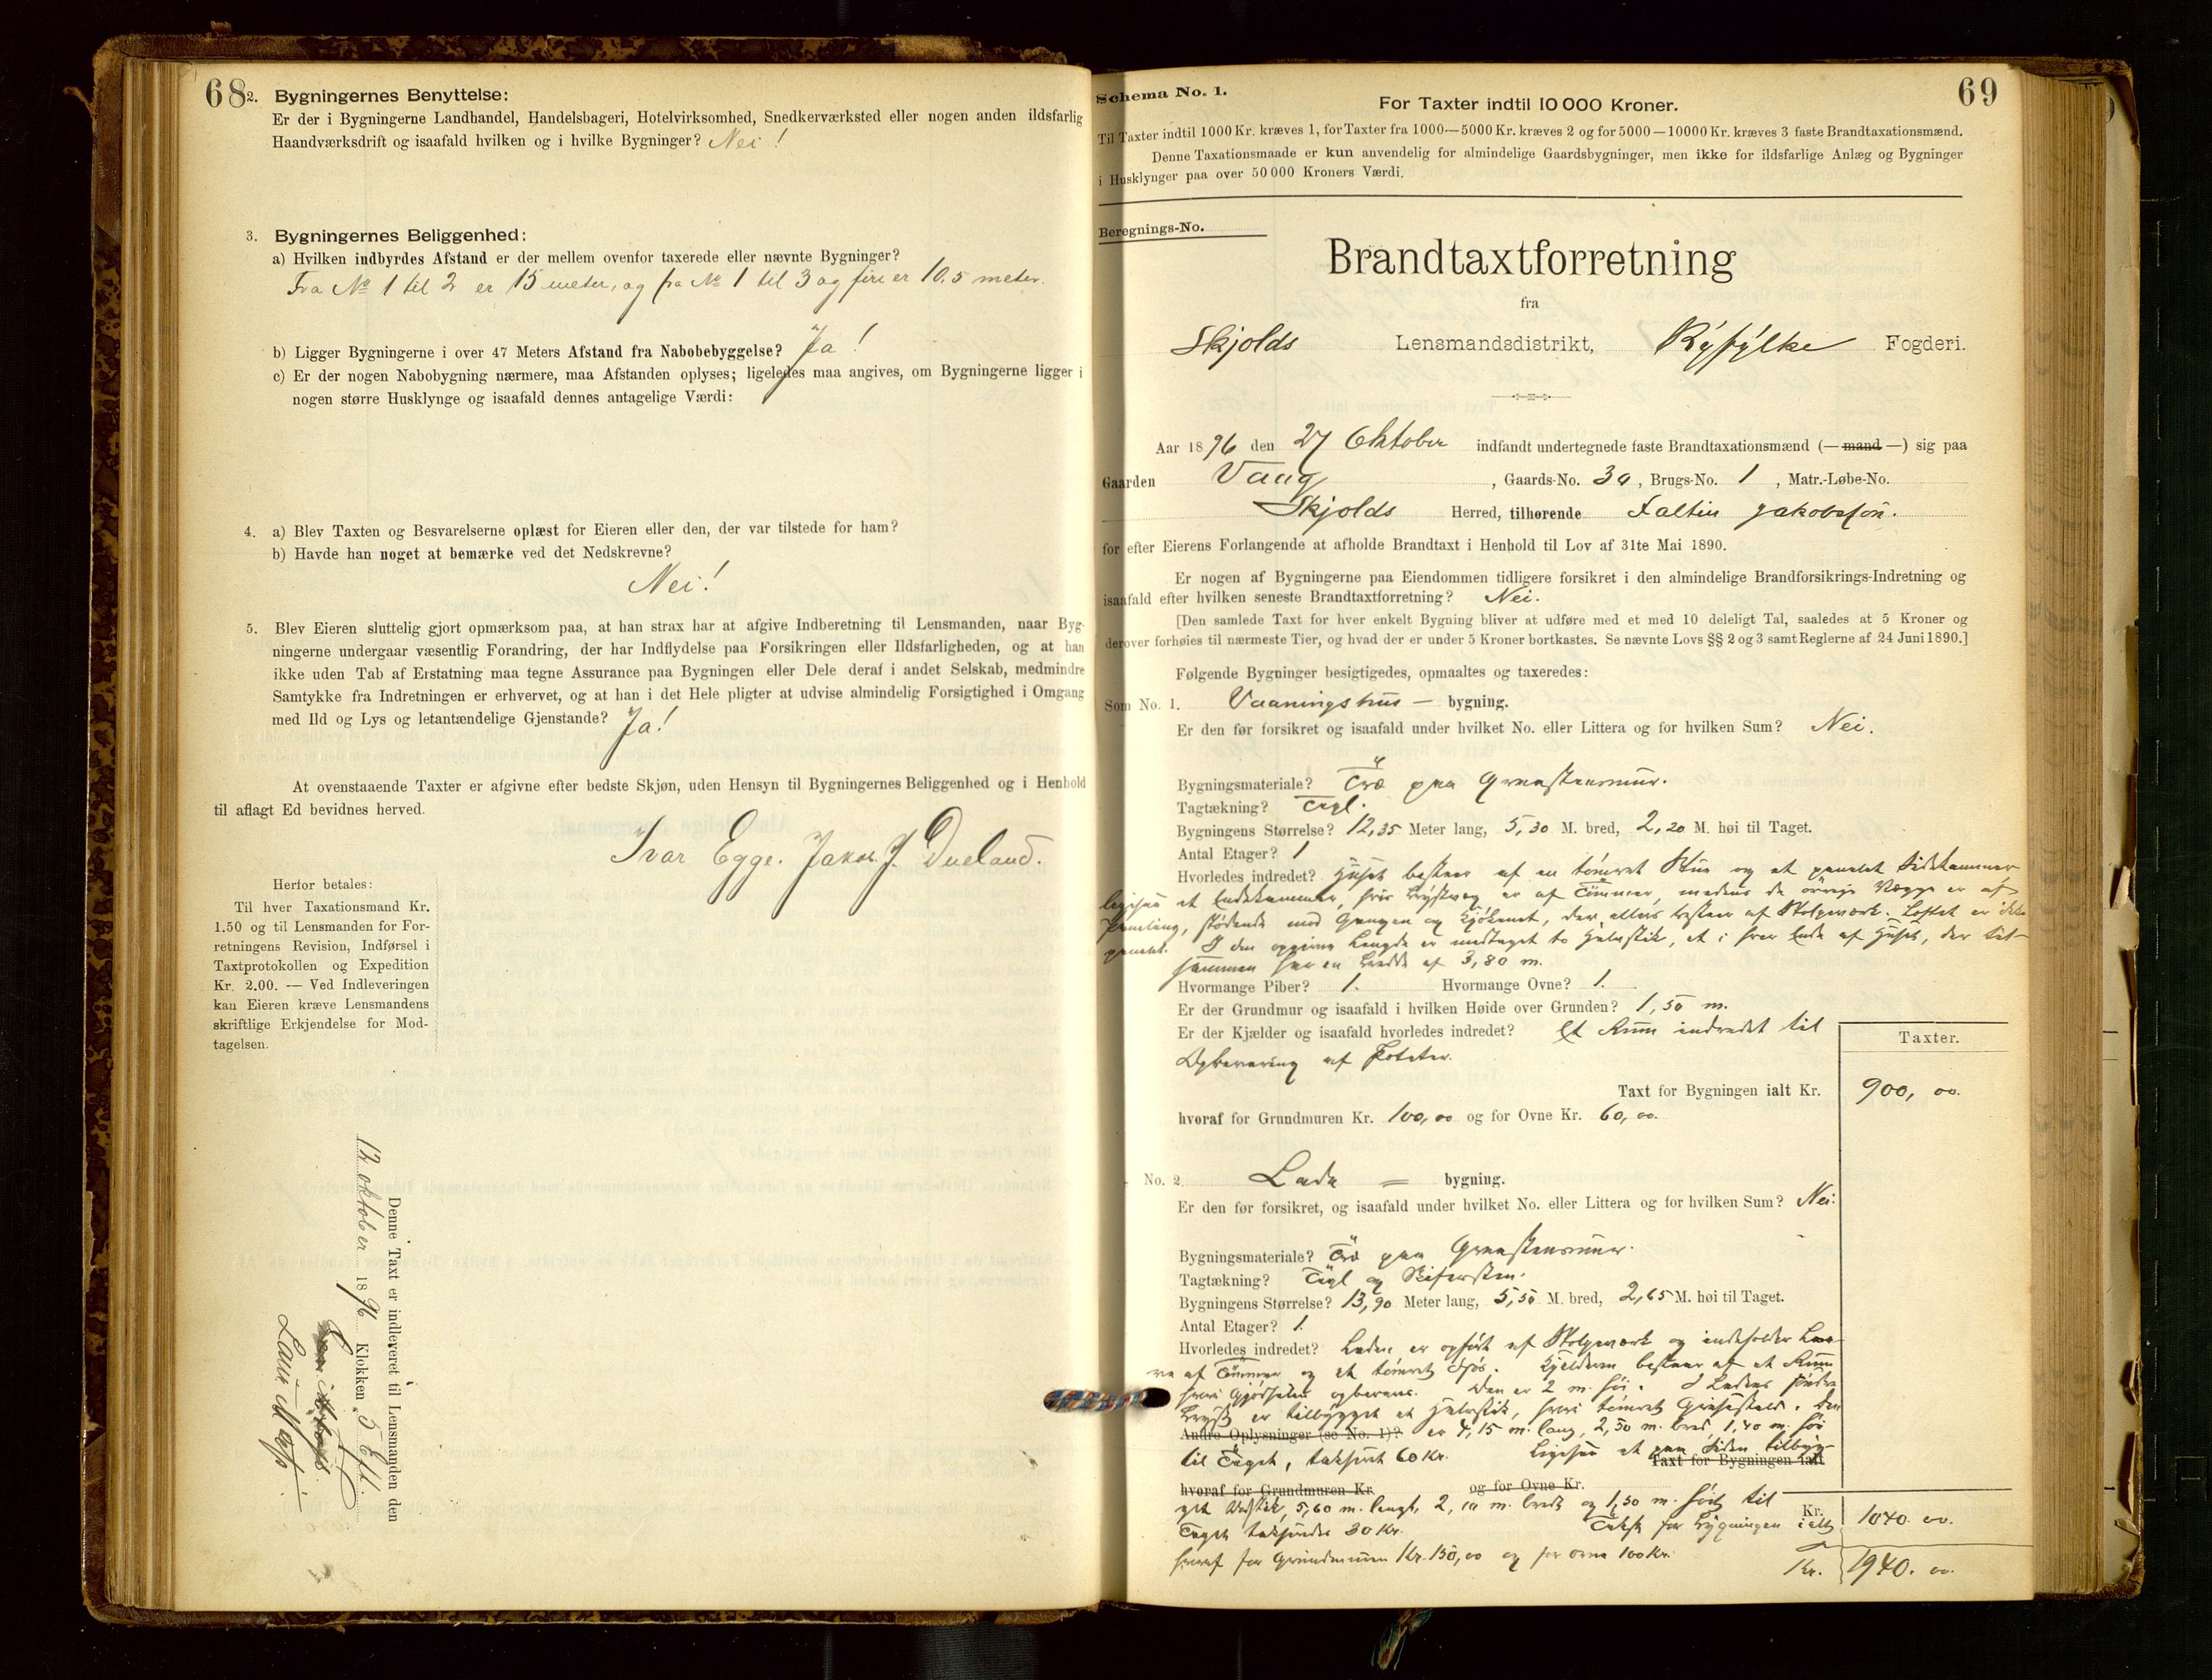 68
2. Bygningernes Benyttelse:
Er der i Bygningerne Landhandel, Handelsbageri, Hotelvirksomhed, Snedkerværksted eller nogen anden ildsfarlig
Haandværksdrift og isaafald hvilken og i hvilke Bygninger? Nei!
3. Bygningernes Beliggenhed:
a) Hvilken indbyrdes Afstand er der mellem ovenfor taxerede eller nævnte Bygninger?
Fra No 1 til 2 er 15 meter, og fra No 1 til 3 og fire er 10,5 meter.
b) Ligger Bygningerne i over 47 Meters Afstand fra Nabobebyggelse? Ja!
c) Er der nogen Nabobygning nærmere, maa Afstanden oplyses; ligeledes maa angives, om Bygningerne ligger i
nogen større Husklynge og isaafald dennes antagelige Værdi:
4. a) Blev Taxten og Besvarelserne oplæst for Eieren eller den, der var tilstede for ham?
b) Havde han noget at bemærke ved det Nedskrevne?
Nei!
5. Blev Eieren sluttelig gjort opmærksom paa, at han strax har at afgive Indberetning til Lensmanden, naar Byg-
ningerne undergaar væsentlig Forandring, der har Indflydelse paa Forsikringen eller Ildsfarligheden, og at han
ikke uden Tab af Erstatning maa tegne Assurance paa Bygningen eller Dele deraf i andet Selskab, medmindre
Samtykke fra Indretningen er erhvervet, og at han i det Hele pligter at udvise almindelig Forsigtighed i Omgang
med Ild og Lys og letantændelige Gjenstande? Ja!
At ovenstaaende Taxter er afgivne efter bedste Skjøn, uden Hensyn til Bygningernes Beliggenhed og i Henhold
til aflagt Ed bevidnes herved.
Ivar Egge. Jakob J. Dueland.
Herfor betales:
Til hver Taxationsmand Kr.
1.50 og til Lensmanden for For-
retningens Revision, Indførsel i
Taxtprotokollen og Expedition
Kr. 2.00. — Ved Indleveringen
kan Eieren kræve Lensmandens
skriftlige Erkjendelse for Mod-
tagelsen.
Denne Taxt er indleveret til Lensmanden den
12 oktober 1896 Klokken 5 Eft.
69
Schema No. 1.
For Taxter indtil 10 000 Kroner.
Til Taxter indtil 1000 Kr. kræves 1, for Taxter fra 1000—5000 Kr. kræves 2 og for 5000—10000 Kr. kræves 3 faste Brandtaxationsmænd.
Denne Taxationsmaade er kun anvendelig for almindelige Gaardsbygninger, men ikke for ildsfarlige Anlæg og Bygninger
i Husklynger paa over 50 000 Kroners Værdi.
Beregnings-No.
Brandtaxtforretning
fra
Skjolds Lensmandsdistrikt, Ryfylke Fogderi.
Aar 1896 den 27 Oktober indfandt undertegnede faste Brandtaxationsmænd (—mand—) sig paa
Gaarden Vaag, Gaards-No. 30, Brugs-No. 1, Matr.-Løbe-No.
Skjolds Herred, tilhørende Faltin Jakobsson.
for efter Eierens Forlangende at afholde Brandtaxt i Henhold til Lov af 31te Mai 1890.
Er nogen af Bygningerne paa Eiendommen tidligere forsikret i den almindelige Brandforsikrings-Indretning og
isaafald efter hvilken seneste Brandtaxtforretning? Nei.
[Den samlede Taxt for hver enkelt Bygning bliver at udføre med et med 10 deleligt Tal, saaledes at 5 Kroner og
derover forhøies til nærmeste Tier, og hvad der er under 5 Kroner bortkastes. Se nævnte Lovs §§ 2 og 3 samt Reglerne af 24 Juni 1890.]
Følgende Bygninger besigtigedes, opmaaltes og taxeredes:
Som No. 1. Vaaningshus — bygning.
Er den før forsikret og isaafald under hvilket No. eller Littera og for hvilken Sum? Nei.
Bygningsmateriale? Træ paa Graastensmur.
Tagtækning? Tegl.
Bygningens Størrelse? 12,35 Meter lang, 5,30 M. bred, 2,20 M. høi til Taget.
Antal Etager? 1
Hvorledes indredet? Huset bestaar af en tømret Stue og et panelet Sidekammer
ligesaa et Endekammer, hvis Brystvæg er af Tømmer, medens de øvrige Vægge er af
Paneling, stødende mod Gangen og Kjøkkenet, der ellers bestaar af Stolpeværk. Loftet er ikke
panelt. I den opgivne Længde er medtaget to Halvstik, et i hver Ende af Huset, der til-
sammen har en Bredde af 3,80 m.
Hvormange Piber? 1. Hvormange Ovne? 1.
Er der Grundmur og isaafald i hvilken Høide over Grunden? 1,50 m.
Er der Kjælder og isaafald hvorledes indredet? Et Rum indredet til
Opbevaring af Poteter.
Taxter.
Taxt for Bygningen ialt Kr. 900,00.
hvoraf for Grundmuren Kr. 100,00 og for Ovne Kr. 60,00.
No. 2 Lade = bygning.
Er den før forsikret, og isaafald under hvilket No. eller Littera og for hvilken Sum? Nei.
Bygningsmateriale? Træ paa Graastensmur.
Tagtækning? Tegl og Skifersten.
Bygningens Størrelse? 13,90 Meter lang, 5,50 M. bred, 2,65 M. høi til Taget.
Antal Etager? 1.
Hvorledes indredet? Laden er opført af Stolpeværk og indeholder Laa-
ve af Tømmer og et tømret Fjøs. Kjelderen bestaar af et Rum
hvori Gjødselen opbevares. Den er 2 m. høi. I Ladens søndre
Bryst er tilbygget et Halvstik, hvori tømret Grisestald. Den
Andre Oplysninger (se No. 1)? er 4,15 m. lang, 2,50 m. bred, 1,40 m. høi
til Taget, taxeret 60 Kr. Ligesaa et paa Siden tilbyg-
Taxt for Bygningen ialt
hvoraf for Grundmuren Kr. og for Ovne Kr.
get 5,60 m. langt, 2,10 m. bredt og 1,50 m. høit til
Taget taxeredes 30 Kr. Taxt for Bygningen ialt Kr. 1040.00.
hvoraf for Grundmuren Kr. 150,00 og for 100 Kr.
Kr. 1940.00